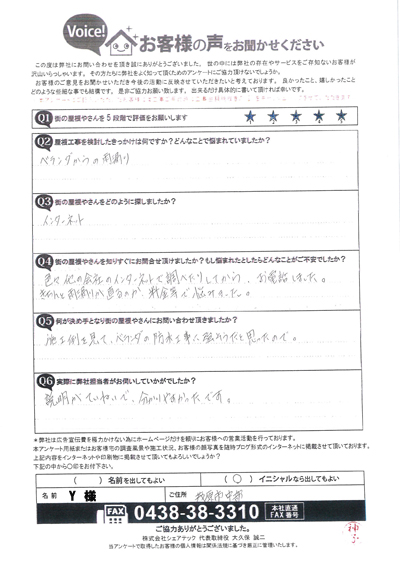 Voice!
お客様の声をお聞かせください
この度は弊社にお問い合わせを頂き誠にありがとうございました。世の中には弊社の存在やサービスをご存知ないお客様が
沢山いらっしゃいます。その方たちに弊社をよく知って頂くためのアンケートにご協力頂けないでしょうか。
お客様のご意見をお聞かせいただき今後の活動に反映させていただきたいと考えております。良かったこと、嬉しかったこと
どのような些細な事でも結構です。是非ご協力お願い致します。出来るだけ具体的に書いて頂ければ幸いです。
Q1 街の屋根やさんを5段階で評価をお願いします ★ ★ ★ ★ ★
Q2 屋根工事を検討したきっかけは何ですか？どんなことで悩まれていましたか？
ベランダからの雨漏り
Q3 街の屋根やさんをどのように探しましたか？
インターネット
Q4 街の屋根やさんを知りすぐにお問合せ頂けましたか？もし悩まれたとしたらどんなことがご不安でしたか？
色々他の会社のインターネットで調べたりしてから、お電話しました。
きちんと雨漏りが直るのか、料金等で悩みました。
Q5 何が決め手となり街の屋根やさんにお問い合わせ頂きましたか？
施工例を見て、ベランダの防水工事に強そうだと思ったので。
Q6 実際に弊社担当者がお伺いしていかがでしたか？
説明がていねいで、分かりやすかったです。
＊弊社は広告宣伝費を極力かけない為にホームページだけを頼りにお客様への営業活動を行っております。
本アンケート用紙またはお客様宅の調査風景や施工状況、お客様の顔写真を随時ブログ形式のインターネットに掲載させて頂いております。
上記内容をインターネットや印刷物に掲載させて頂いてもよろしいでしょうか？
下記の中から〇印をお付下さい。
（　）名前を出してもよい （○）イニシャルなら出してもよい
名前 Y 様 ご住所
FAX 0438-38-3310 本社直通 FAX番号
ご協力ありがとうございました。
株式会社シェアテック 代表取締役 大久保 誠二
当アンケートで取得したお客様の個人情報は関係法規に基づき厳正に管理いたします。